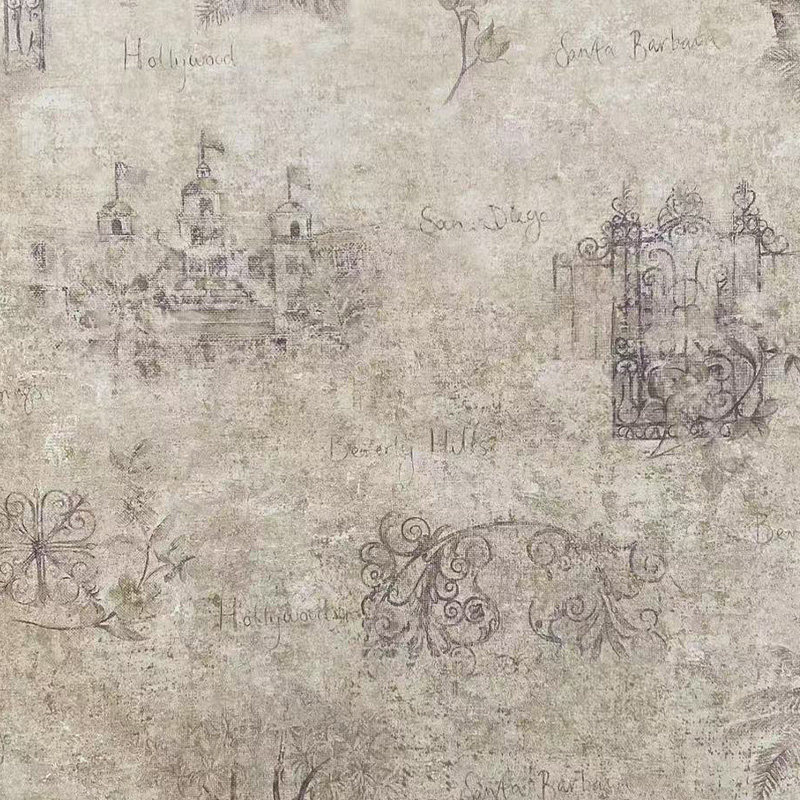 Hollywood
Santa Barbara
San Diego
Beverly Hills
Hollywood
Santa Barbara